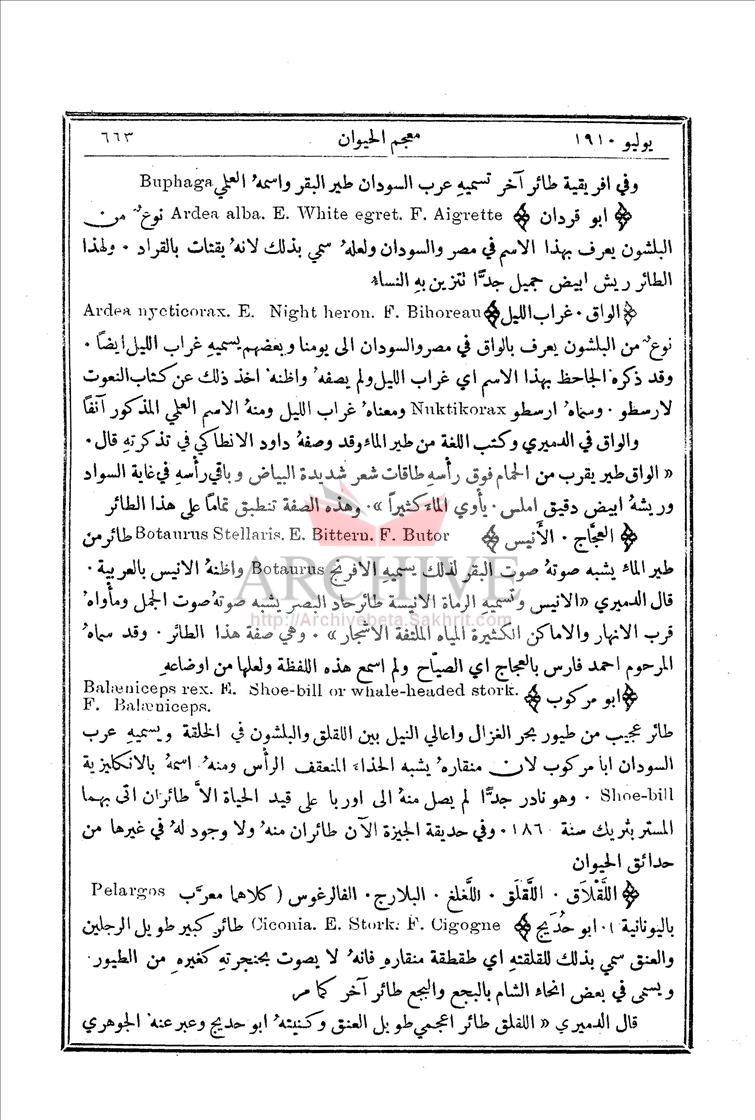 يوليو ١٩١٠ معجم الحيوان ٦٦٣
وفي افريقية طائر آخر تسميهِ عرب السودان طير البقر واسمهُ العلمي Buphaga
﴿ ابو قردان ﴾ Ardea alba. E. White egret. F. Aigrette نوعٌ من
البلشون يعرف بهذا الاسم في مصر والسودان ولعلهُ سمي بذلك لانهُ يقتات بالقراد ٠ ولهذا
الطائر ريش ابيض جميل جدًّا تتزين بهِ النساء
﴿ الواق ٠ غراب الليل ﴾ Ardea nycticorax. E. Night heron. F. Bihoreau
نوعٌ من البلشون يعرف بالواق في مصر والسودان الى يومنا وبعضهم يسميهِ غراب الليل ايضًا ٠
وقد ذكرهُ الجاحظ بهذا الاسم اي غراب الليل ولم يصفهُ واظنهُ اخذ ذلك عن كتاب النعوت
لارسطو ٠ وسماهُ ارسطو Nuktikorax ومعناهُ غراب الليل ومنهُ الاسم العلمي المذكور آنفًا
والواق في الدميري وكتب اللغة من طير الماء وقد وصفهُ داود الانطاكي في تذكرتهِ قال ٠
« الواق طير يقرب من الحمام فوق رأسهِ طاقات شعر شديدة البياض وباقي رأسهِ في غاية السواد
وريشهُ ابيض دقيق املس ٠ يأوي الماء كثيراً » ٠ وهذه الصفة تنطبق تمامًا على هذا الطائر
﴿ العجَّاج ٠ الأنيس ﴾ Botaurus Stellaris. E. Bittern. F. Butor طائر من
طير الماء يشبه صوتهُ صوت البقر لذلك يسميهِ الافرنج Botaurus واظنهُ الانيس بالعربية ٠
ARCHIVE
قال الدميري « الانيس وتسميهِ الرماة الانيسة طائر حاد البصر يشبه صوتهُ صوت الجمل ومأواهُ
http://Archivebeta.Sakhrit.com
قرب الانهار والاماكن الكثيرة المياه الملتفة الاشجار » ٠ وهي صفة هذا الطائر ٠ وقد سماهُ
المرحوم احمد فارس بالعجاج اي الصيَّاح ولم اسمع هذه اللفظة ولعلها من اوضاعهِ
﴿ ابو مركوب ﴾ Balæniceps rex. E. Shoe-bill or whale-headed stork.
F. Balæniceps.
طائر عجيب من طيور بحر الغزال واعالي النيل بين اللقلق والبلشون في الخلقة ويسميهِ عرب
السودان ابا مركوب لان منقارهُ يشبه الحذاء المنعقف الرأس ومنهُ اسمهُ بالانكليزية
Shoe-bill ٠ وهو نادر جدًّا لم يصل منهُ الى اوربا على قيد الحياة الاَّ طائران اتى بهما
المستر بثريك سنة ١٨٦٠ ٠ وفي حديقة الجيزة الآن طائران منهُ ولا وجود لهُ في غيرها من
حدائق الحيوان
﴿ اللَّقْلاَق ٠ اللَّقلَق ٠ اللَّغلغ ٠ البلارج ٠ الفالرغوس ( كلاهما معرَّب Pelargos
باليونانية ) ٠ ابو حُدَيج ﴾ Ciconia. E. Stork. F. Cigogne طائر كبير طويل الرجلين
والعنق سمي بذلك للقلقتهِ اي طقطقة منقارهِ فانهُ لا يصوت بحنجرتهِ كغيرهِ من الطيور ٠
ويسمى في بعض انحاء الشام بالبجع والبجع طائر آخر كما مر
قال الدميري « اللقلق طائر اعجمي طويل العنق وكنيتهُ ابو حديج وعبر عنهُ الجوهري